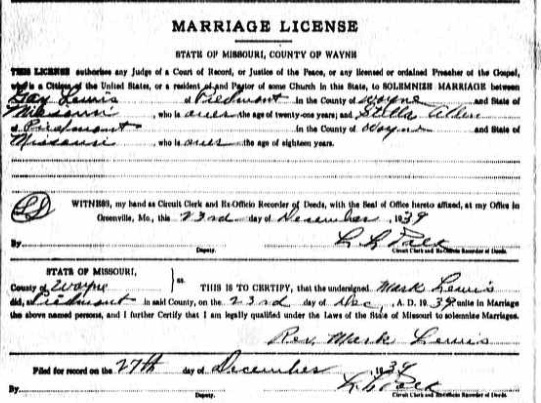 MARRIAGE LICENSE
STATE OF MISSOURI, COUNTY OF WAYNE
THIS LICENSE authorizes any Judge of a Court of Record, or Justice of the Peace, or any licensed or ordained Preacher of the Gospel,
who is a Citizen of the United States, or a resident of and Pastor of some Church in this State, to SOLEMNIZE MARRIAGE between
Lewis of Piedmont in the County of Wayne and State of
Missouri, who is over the age of twenty-one years; and Stella Allen
of Piedmont in the County of Wayne and State of
Missouri who is over the age of eighteen years.
WITNESS, my hand as Circuit Clerk and Ex-Officio Recorder of Deeds, with the Seal of Office hereto affixed, at my Office in
Greenville, Mo., this 23rd day of December, 1939
By
Deputy. Circuit Clerk and Ex-Officio Recorder of Deeds.
STATE OF MISSOURI,
County of Wayne ss. THIS IS TO CERTIFY, that the undersigned Mark Lewis
did, at Piedmont in said County, on the 23rd day of Dec, A. D. 1939 unite in Marriage
the above named persons, and I further Certify that I am legally qualified under the Laws of the State of Missouri to solemnize Marriages.
Rev. Mark Lewis
Filed for record the 27th day of December, 1939
By
Deputy. Circuit Clerk and Ex-Officio Recorder of Deeds.